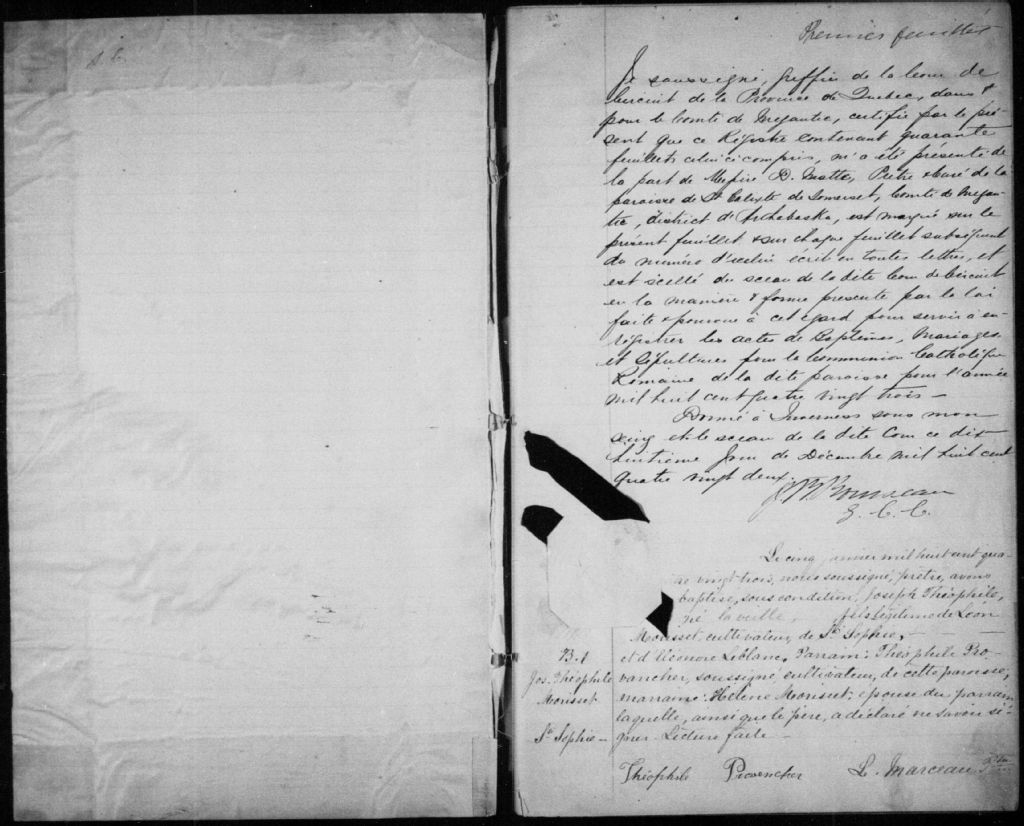 Premier feuillet
Je soussigné, Greffier de la Cour de
Circuit de la Province de Quebec, dans &
pour le Comté de Megantic, certifie par le pré-
sent que ce Régistre contenant quarante
feuillets celui ci compris, m'a été présenté de
la part de Messire D. Matte, Prêtre & Curé de la
paroisse de St Calixte de Somerset, Comté de Megan-
tic, district d'Arthabaska, est marqué sur le
présent feuillet & sur chaque feuillet subséquent
du numéro d'icelui écrit en toutes lettres, et
est scellé du sceau de la dite Cour de Circuit
en la manière & forme prescrite par la loi
faite & pourvue à cet égard pour servir à en-
régistrer les actes de Baptêmes, Mariages
et Sépultures pour la Communion Catholique
Romaine de la dite paroisse pour l'année
mil huit cent quatre vingt trois —
Donné à Inverness sous mon
seing et le sceau de la dite Cour ce dix
huitième jour de Décembre mil huit cent
quatre vingt deux.
G. C. C.
Le cinq janvier mil huit cent qua-
tre vingt trois, nous soussigné, prêtre, avons
baptisé, sous condition, Joseph Théophile,
né la veille, fils légitime de Léon
Morisset, cultivateur, de Ste Sophie,
B. 1
et d'Eléonore Leblanc. Parrain: Théophile Pro-
Jos. Théophile
vancher, soussigné, cultivateur, de cette paroisse;
Morisset
marraine: Hélène Morisset, épouse du parrain
laquelle, ainsi que le père, a déclaré ne savoir si-
Ste Sophie —
gner. Lecture faite —
Théophile Provencher L. Marceau Ptre